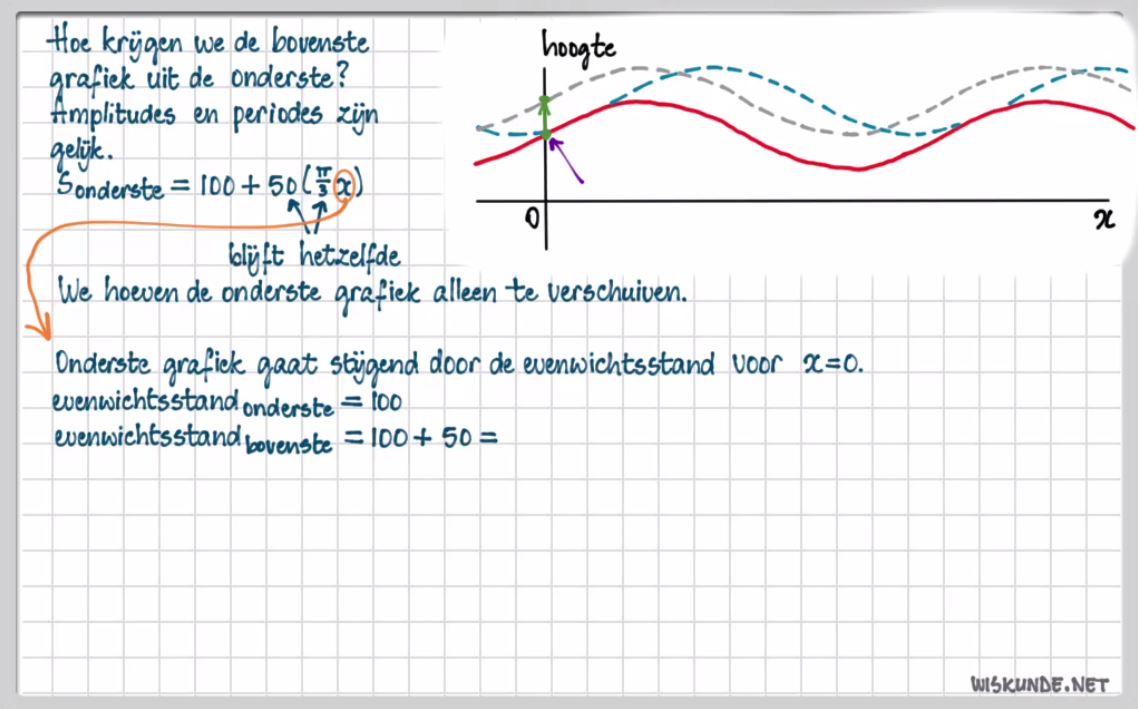 Hoe krijgen we de bovenste
grafiek uit de onderste?
Amplitudes en periodes zijn
gelijk.
Sonderste = 100 + 50(π/3 x)
blijft hetzelfde
We hoeven de onderste grafiek alleen te verschuiven.
Onderste grafiek gaat stijgend door de evenwichtsstand voor x=0.
evenwichtsstand onderste = 100
evenwichtsstand bovenste = 100 + 50 =
hoogte
0
x
WISKUNDE.NET